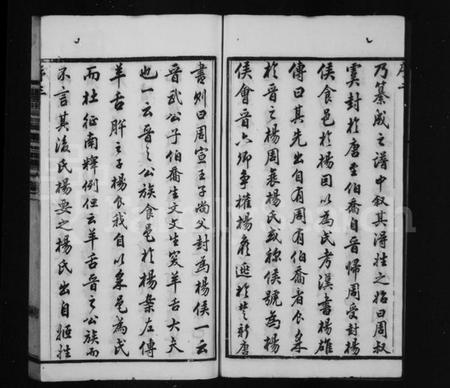 乃纂成之譜中叙其得姓之始曰周叔
虞封於唐至伯喬自晉歸周受封楊
侯食邑於楊因以為氏考漢書楊雄
傳曰其先出自有周有伯喬者食采
於晉之楊周衰楊氏或稱侯號為楊
侯會晉六卿爭權楊侯逃於楚新唐
書則曰周宣王子尚父封為楊侯一云
晉武公子伯喬生文文生突羊舌大夫
也一云晉之公族食邑於楊葉左傳
羊舌肸之子楊食我自以采邑為氏
而杜征南釋例但云羊舌晉之公族而
不言其後氏楊要之楊氏出自姬姓
序二
序三